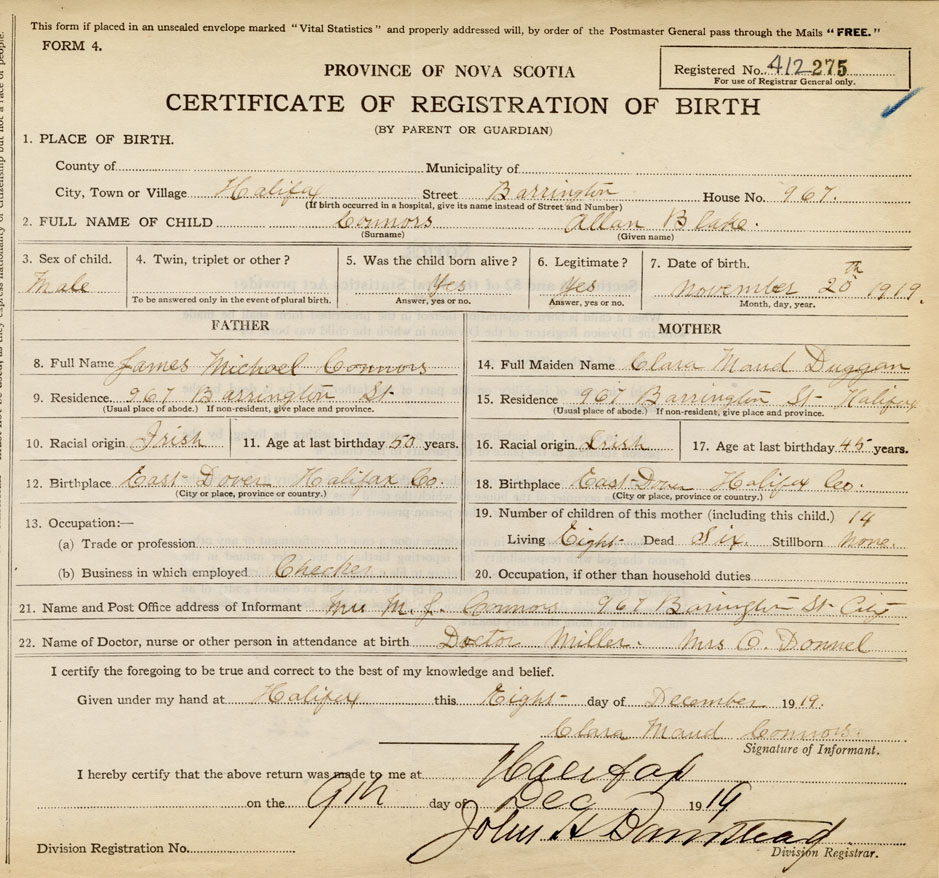 This form if placed in an unsealed envelope marked "Vital Statistics" and properly addressed will, by order of the Postmaster General pass through the Mails "FREE."
FORM 4.
Registered No. 412275
For use of Registrar General only.
PROVINCE OF NOVA SCOTIA
CERTIFICATE OF REGISTRATION OF BIRTH
(BY PARENT OR GUARDIAN)
1. PLACE OF BIRTH.
County of Municipality of
City, Town or Village Halifax Street Barrington House No. 967.
(If birth occurred in a hospital, give its name instead of Street and Number)
2. FULL NAME OF CHILD Connors Allan Blake.
(Surname) (Given name)
3. Sex of child. 4. Twin, triplet or other? 5. Was the child born alive? 6. Legitimate? 7. Date of birth.
Male Yes Yes November 20th 1919.
To be answered only in the event of plural birth. Answer, yes or no. Answer, yes or no. Month, day, year.
FATHER MOTHER
8. Full Name James Michael Connors 14. Full Maiden Name Clara Maud Duggan
9. Residence. 967 Barrington St 15. Residence 967 Barrington St Halifax
(Usual place of abode.) If non-resident, give place and province. (Usual place of abode.) If non-resident, give place and province.
10. Racial origin Irish 11. Age at last birthday 50 years. 16. Racial origin Irish 17. Age at last birthday 45 years.
12. Birthplace East Dover Halifax Co. 18. Birthplace East Dover Halifax Co.
(City or place, province or country.) (City or place, province or country.)
13. Occupation:— 19. Number of children of this mother (including this child.) 14
(a) Trade or profession Living Eight Dead Six. Stillborn None.
(b) Business in which employed Checker 20. Occupation, if other than household duties
21. Name and Post Office address of Informant Mrs M. J. Connors 967 Barrington St City
22. Name of Doctor, nurse or other person in attendance at birth Doctor Miller. Mrs O. Donnel
I certify the foregoing to be true and correct to the best of my knowledge and belief.
Given under my hand at Halifax this Eight day of December 1919.
Clara Maud Connors.
Signature of Informant.
I hereby certify that the above return was made to me at Halifax
on the 9th day of Dec 1919
John H
Division Registration No. Division Registrar.